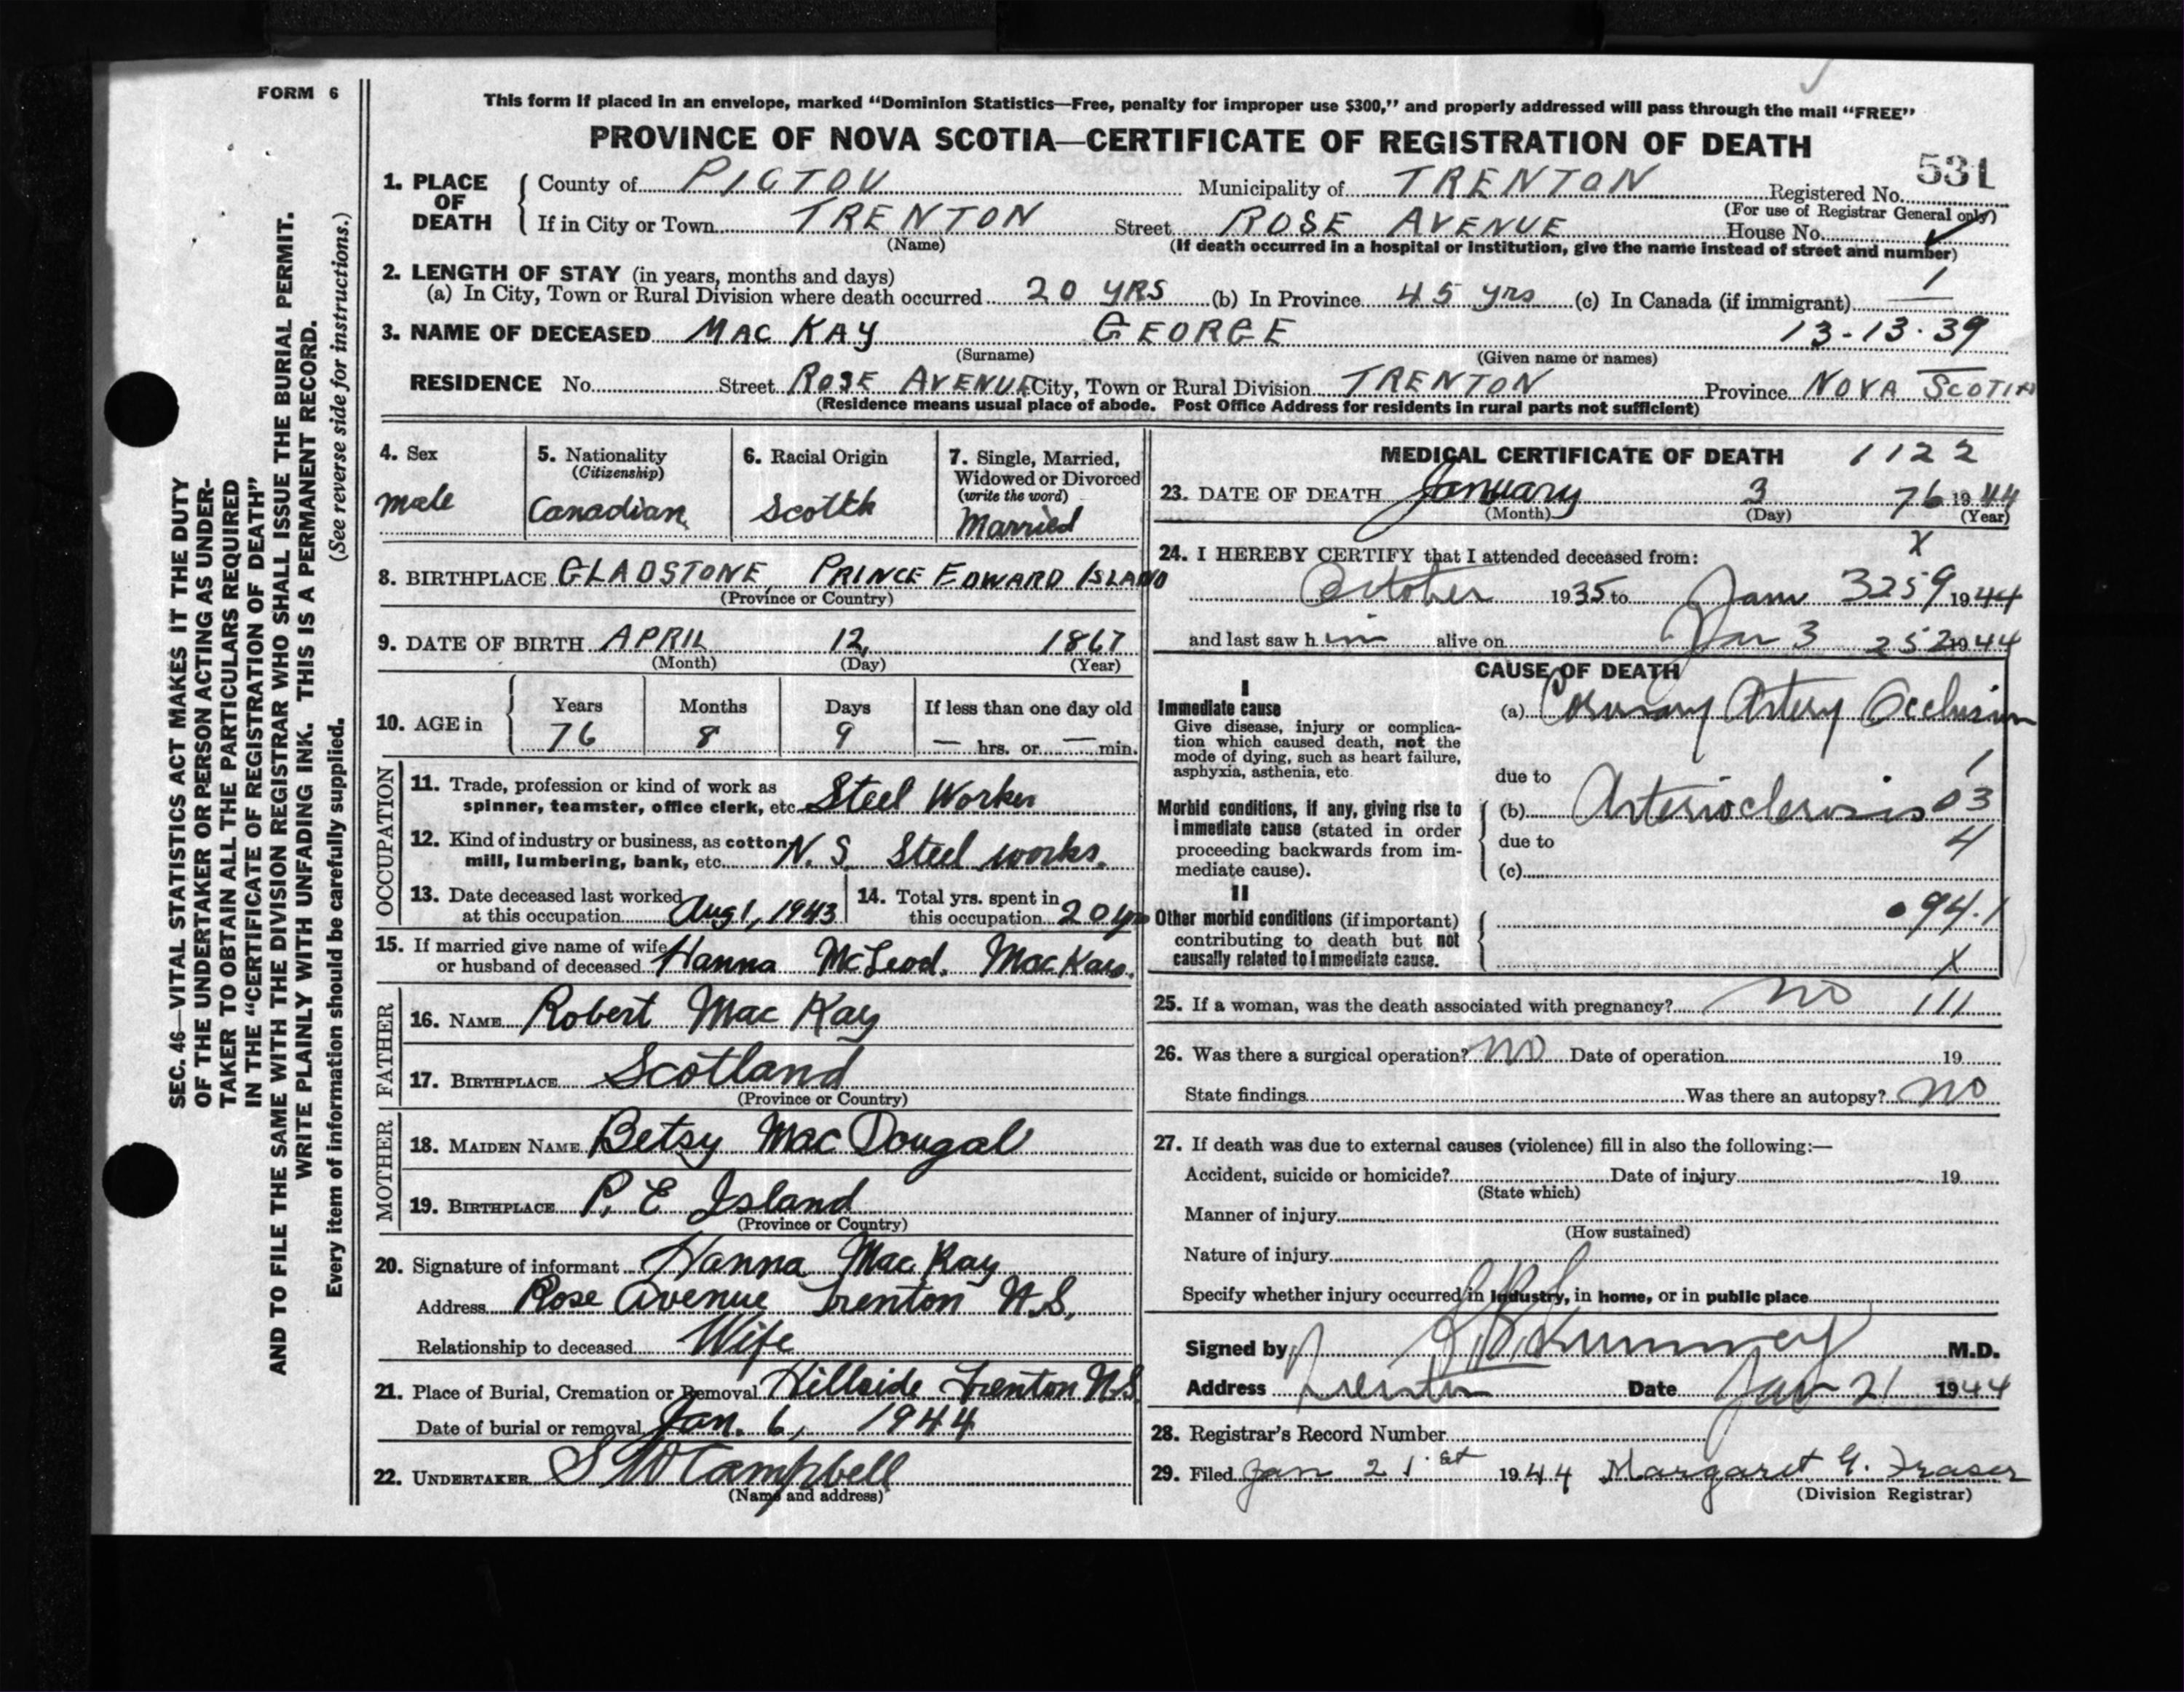 FORM 6
This form if placed in an envelope, marked "Dominion Statistics—Free, penalty for improper use $300," and properly addressed will pass through the mail "FREE"
PROVINCE OF NOVA SCOTIA—CERTIFICATE OF REGISTRATION OF DEATH
531
1. PLACE OF DEATH
County of PICTOU Municipality of TRENTON Registered No.
(For use of Registrar General only)
If in City or Town TRENTON Street ROSE AVENUE House No.
(Name) (If death occurred in a hospital or institution, give the name instead of street and number)
2. LENGTH OF STAY (in years, months and days)
(a) In City, Town or Rural Division where death occurred 20 YRS (b) In Province 45 yrs (c) In Canada (if immigrant) 1
3. NAME OF DECEASED MAC KAY GEORGE 13-13.39
(Surname) (Given name or names)
RESIDENCE No. Street ROSE AVENUE City, Town or Rural Division TRENTON Province NOVA SCOTIA
(Residence means usual place of abode. Post Office Address for residents in rural parts not sufficient)
4. Sex
male
5. Nationality
(Citizenship)
Canadian
6. Racial Origin
Scotch
7. Single, Married, Widowed or Divorced
(write the word)
Married
8. BIRTHPLACE GLADSTONE, PRINCE EDWARD ISLAND
(Province or Country)
9. DATE OF BIRTH APRIL 12, 1867
(Month) (Day) (Year)
10. AGE in
Years Months Days If less than one day old
76 8 9 — hrs. or — min.
OCCUPATION
11. Trade, profession or kind of work as
spinner, teamster, office clerk, etc. Steel Worker
12. Kind of industry or business, as cotton
mill, lumbering, bank, etc. N. S. Steel works.
13. Date deceased last worked
at this occupation Aug 1, 1943
14. Total yrs. spent in
this occupation 20 yrs
15. If married give name of wife
or husband of deceased Hanna McLeod. MacKay.
FATHER
16. NAME Robert Mac Kay
17. BIRTHPLACE Scotland
(Province or Country)
MOTHER
18. MAIDEN NAME Betsy Mac Dougal
19. BIRTHPLACE P. E Island
(Province or Country)
20. Signature of informant Hanna Mac Kay
Address Rose Avenue Trenton N.S.
Relationship to deceased Wife
21. Place of Burial, Cremation or Removal Hillside Trenton N.S.
Date of burial or removal Jan. 6, 1944
22. UNDERTAKER S W Campbell
(Name and address)
MEDICAL CERTIFICATE OF DEATH 1122
23. DATE OF DEATH January 3 76 1944
(Month) (Day) (Year)
X
24. I HEREBY CERTIFY that I attended deceased from:
October 1935 to Jan 3 259 1944
and last saw h im alive on Jan 3 252 1944
CAUSE OF DEATH
I
Immediate cause
Give disease, injury or complication which caused death, not the
mode of dying, such as heart failure,
asphyxia, asthenia, etc.
(a) Coronary Artery Occlusion
due to 1
Morbid conditions, if any, giving rise to
immediate cause (stated in order
proceeding backwards from immediate cause).
(b) Arteriosclerosis 03
due to 4
(c)
II
Other morbid conditions (if important)
contributing to death but not
causally related to immediate cause.
94.1
X
25. If a woman, was the death associated with pregnancy? no 111
26. Was there a surgical operation? no Date of operation 19
State findings Was there an autopsy? no
27. If death was due to external causes (violence) fill in also the following:—
Accident, suicide or homicide? Date of injury 19
(State which)
Manner of injury
(How sustained)
Nature of injury
Specify whether injury occurred in industry, in home, or in public place
Signed by M.D.
Address Trenton Date Jan 21 1944
28. Registrar's Record Number
29. Filed Jan 21st 1944 Margaret G. Fraser
(Division Registrar)
SEC. 46—VITAL STATISTICS ACT MAKES IT THE DUTY
OF THE UNDERTAKER OR PERSON ACTING AS UNDER-
TAKER TO OBTAIN ALL THE PARTICULARS REQUIRED
IN THE "CERTIFICATE OF REGISTRATION OF DEATH"
AND TO FILE THE SAME WITH THE DIVISION REGISTRAR WHO SHALL ISSUE THE BURIAL PERMIT.
WRITE PLAINLY WITH UNFADING INK. THIS IS A PERMANENT RECORD.
Every item of information should be carefully supplied. (See reverse side for instructions.)